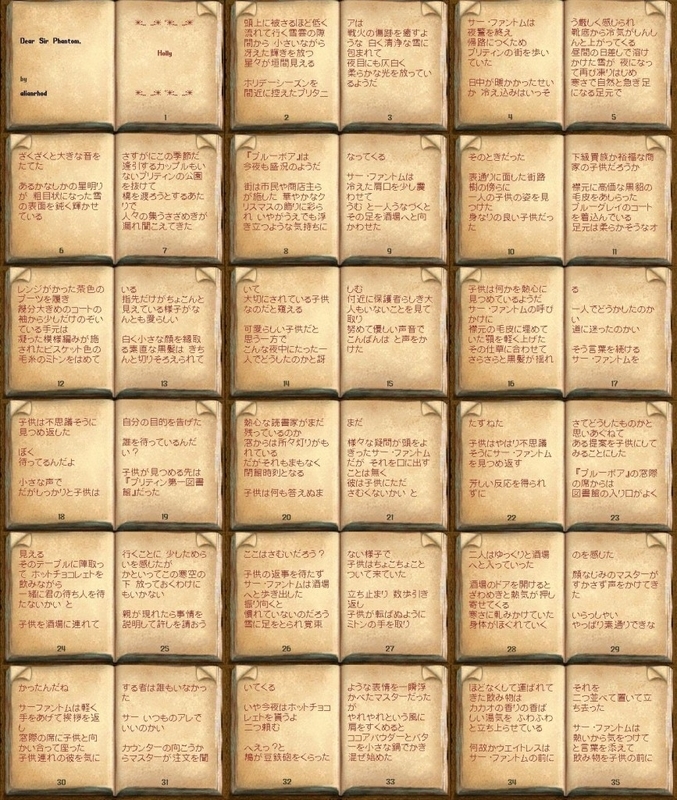 Dear Sir Phantom,
by
alianrhod
Holly
1
頭上に被さるほど低く
流れて行く雪雲の隙
間から 小さいながら
冴えた輝きを放つ
星々が垣間見える
ホリデーシーズンを
間近に控えたブリタニ
2
アは
戦火の傷跡を癒すよ
うな 白く清浄な雪に
包まれて
夜目にも仄白く
柔らかな光を放ってい
るようだ
3
サー・ファントムは
夜警を終え
帰路につくため
ブリティンの街を歩い
ていた
日中が暖かかったせい
か 冷え込みはいっそ
4
う厳しく感じられ
靴底から冷気がしんし
んと上がってくる
昼間の日差しで溶け
かけた雪が 夜になっ
て再び凍りはじめ
寒さで自然と急ぎ足
になる足元で
5
ざくざくと大きな音を
たてた
あるかなしかの星明り
が 粗目状になった雪
の表面を鈍く輝かせ
ている
6
さすがにこの季節だ
遠引するカップルもい
ないブリティンの公園
を抜けて
橋を渡ろうとするあた
りで
人々の集うさざめきが
漏れ聞こえてきた
7
『ブルーボア』は
今夜も盛況のようだ
街は市民や商店主ら
が施した 華やかなク
リスマスの飾りに彩ら
れ いやがうえでも浮
き立つような気持ちに
8
なってくる
サー・ファントムは
冷えた肩口を少し震
わせて
うむ と一人うなづくと
その足を酒場へと向
かわせた
9
そのときだった
表通りに面した街路
樹の傍らに
一人の子供の姿を見
つけた
身なりの良い子供だっ
た
10
下級貴族か裕福な商
家の子供だろうか
襟元に高価な黒貂の
毛皮をあしらった
ブルーグレイのコート
を着込んでいる
足元は柔らかそうなオ
11
レンジがかった茶色の
ブーツを履き
幾分大きめのコートの
袖から少しだけのぞい
ている手元は
凝った模様編みが施
されたビスケット色の
毛糸のミトンをはめて
12
いる
指先だけがちょこんと
見えている様子がな
んとも愛らしい
白く小さな顔を縁取
る素直な黒髪は きち
んと切りそろえられて
13
いて
大切にされている子供
なのだと窺える
可愛らしい子供だと
思う一方で
こんな夜中にたった一
人でどうしたのかと訝
14
しむ
付近に保護者らしき大
人もいないことを見て
取り
努めて優しい声音で
こんばんは と声をか
けた
15
子供は何かを熱心に
見つめているようだ
サー・ファントムの呼び
かけに
襟元の毛皮に埋めて
いた顎を軽く上げた
その仕草に合わせて
さらさらと黒髪が揺れ
16
る
一人でどうかしたのか
い
道に迷ったのかい
そう言葉を続ける
サー・ファントムを
17
子供は不思議そうに
見つめ返した
ぼく
待ってるんだよ
小さな声で
だがしっかりと子供は
18
自分の目的を告げた
誰を待っているんだ
い?
子供が見つめる先は
『ブリティン第一図書
館』だった
19
熱心な読書家がまだ
残っているのか
窓からは所々灯りがも
れている
だがそれもまもなく
閉館時刻となる
子供は何も答えぬま
20
まだ
様々な疑問が頭をよ
ぎったサー・ファントム
だが それを口に出す
ことは無く
彼は子供にただ
さむくないかい と
21
たずねた
子供はやはり不思議
そうにサー・ファントム
を見つめ返す
芳しい反応を得られ
ずに
22
さてどうしたものかと
思いあぐねて
ある提案を子供にして
みることにした
『ブルーボア』の窓際
の席からは
図書館の入り口がよく
23
見える
そのテーブルに陣取っ
て ホットチョコレートを
飲みながら
一緒に君の待ち人を待
たないかい と
子供を酒場に連れて
24
行くことに 少しためら
いを感じたが
かといってこの寒空の
下 放っておくわけに
もいかない
親が現れたら事情を
説明して許しを請おう
25
ここはさむいだろう?
子供の返事を待たず
サー・ファントムは酒場
へと歩き出した
振り向くと
慣れていないのだろう
雪に足をとられ覚束
26
ない様子で
子供はちょこちょこと
ついて来ていた
立ち止まり 数歩引き
返し
子供が転ばぬように
ミトンの手を取り
27
二人はゆっくりと酒場
へと入っていった
酒場のドアを開けると
ざわめきと熱気が押し
寄せてくる
寒さに軋みかけていた
身体がほぐれていく
28
のを感じた
顔なじみのマスターが
すかさず声をかけてき
た
いらっしゃい
やっぱり素通りできな
29
かったんだね
サーファントムは軽く
手をあげて挨拶を返
し
窓際の席に子供と向
かい合って座った
子供連れの彼を気に
30
する者は誰もいなかっ
た
サー いつものアレで
いいのかい
カウンターの向こうか
らマスターが注文を聞
31
いてくる
いや今夜はホットチョコ
レェトを貰うよ
二つ頼む
へえっ?と
鳩が豆鉄砲をくらった
32
ような表情を一瞬浮
かべたマスターだった
が
やれやれという風に
肩をすくめると
ココアパウダーとバタ
ーを小さな鍋でかき
混ぜ始めた
33
ほどなくして運ばれて
きた飲み物は
カカオの香りの香ばし
い湯気を ふわふわ
と立ちらせている
何故かウエイトレスは
サー・ファントムの前に
34
それを
二つ並べて置いて立
ち去った
サー・ファントムは
熱いから気をつけて
と言葉を添えて
飲み物を子供の前に
35